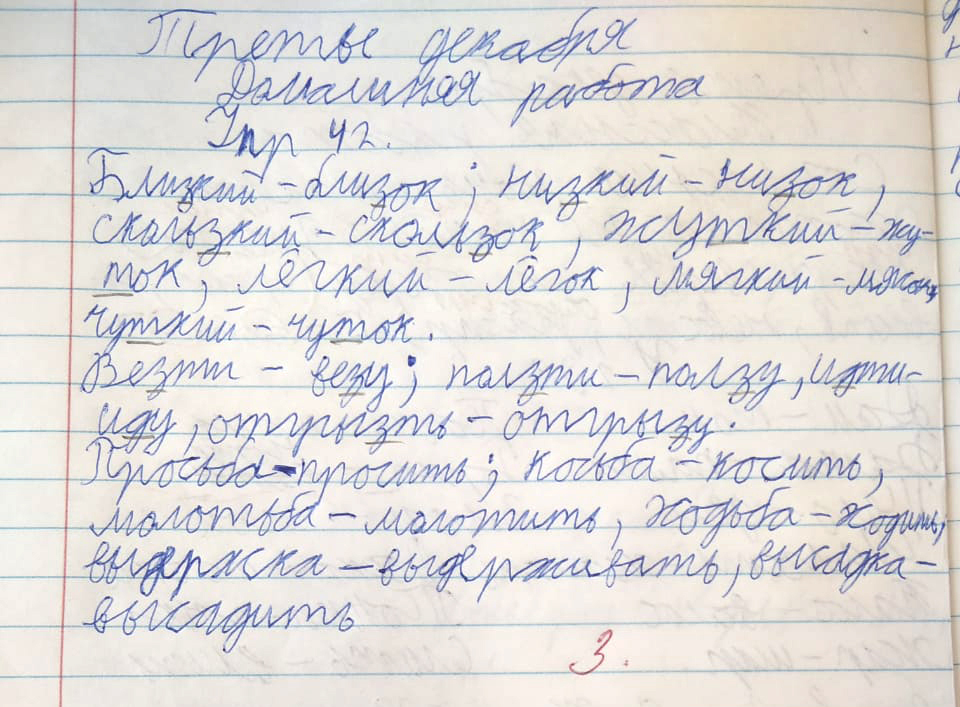 Третье декабря
Домашняя работа
Упр 42.
Близкий - близок; низкий - низок,
скользкий - скользок, жуткий - жу-
ток, лёгкий - лёгок, мягкий - мягок,
чуткий - чуток.
Везти - везу; ползти - ползу, идти -
иду, отгрызть - отгрызу.
Просьба - просить; косьба - косить,
молотьба - молотить, ходьба - ходить,
выдержка - выдерживать, высадка -
высадить
3.